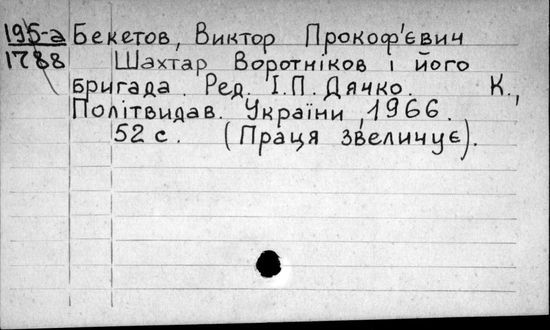 195-а Бекетов, Виктор Прокоф'євич
1788 Шахтар Воротніков і його
бригада. Ред. І.П. Дячко. К.,
Політвидав. України, 1966.
52 с. (Праця звеличує).